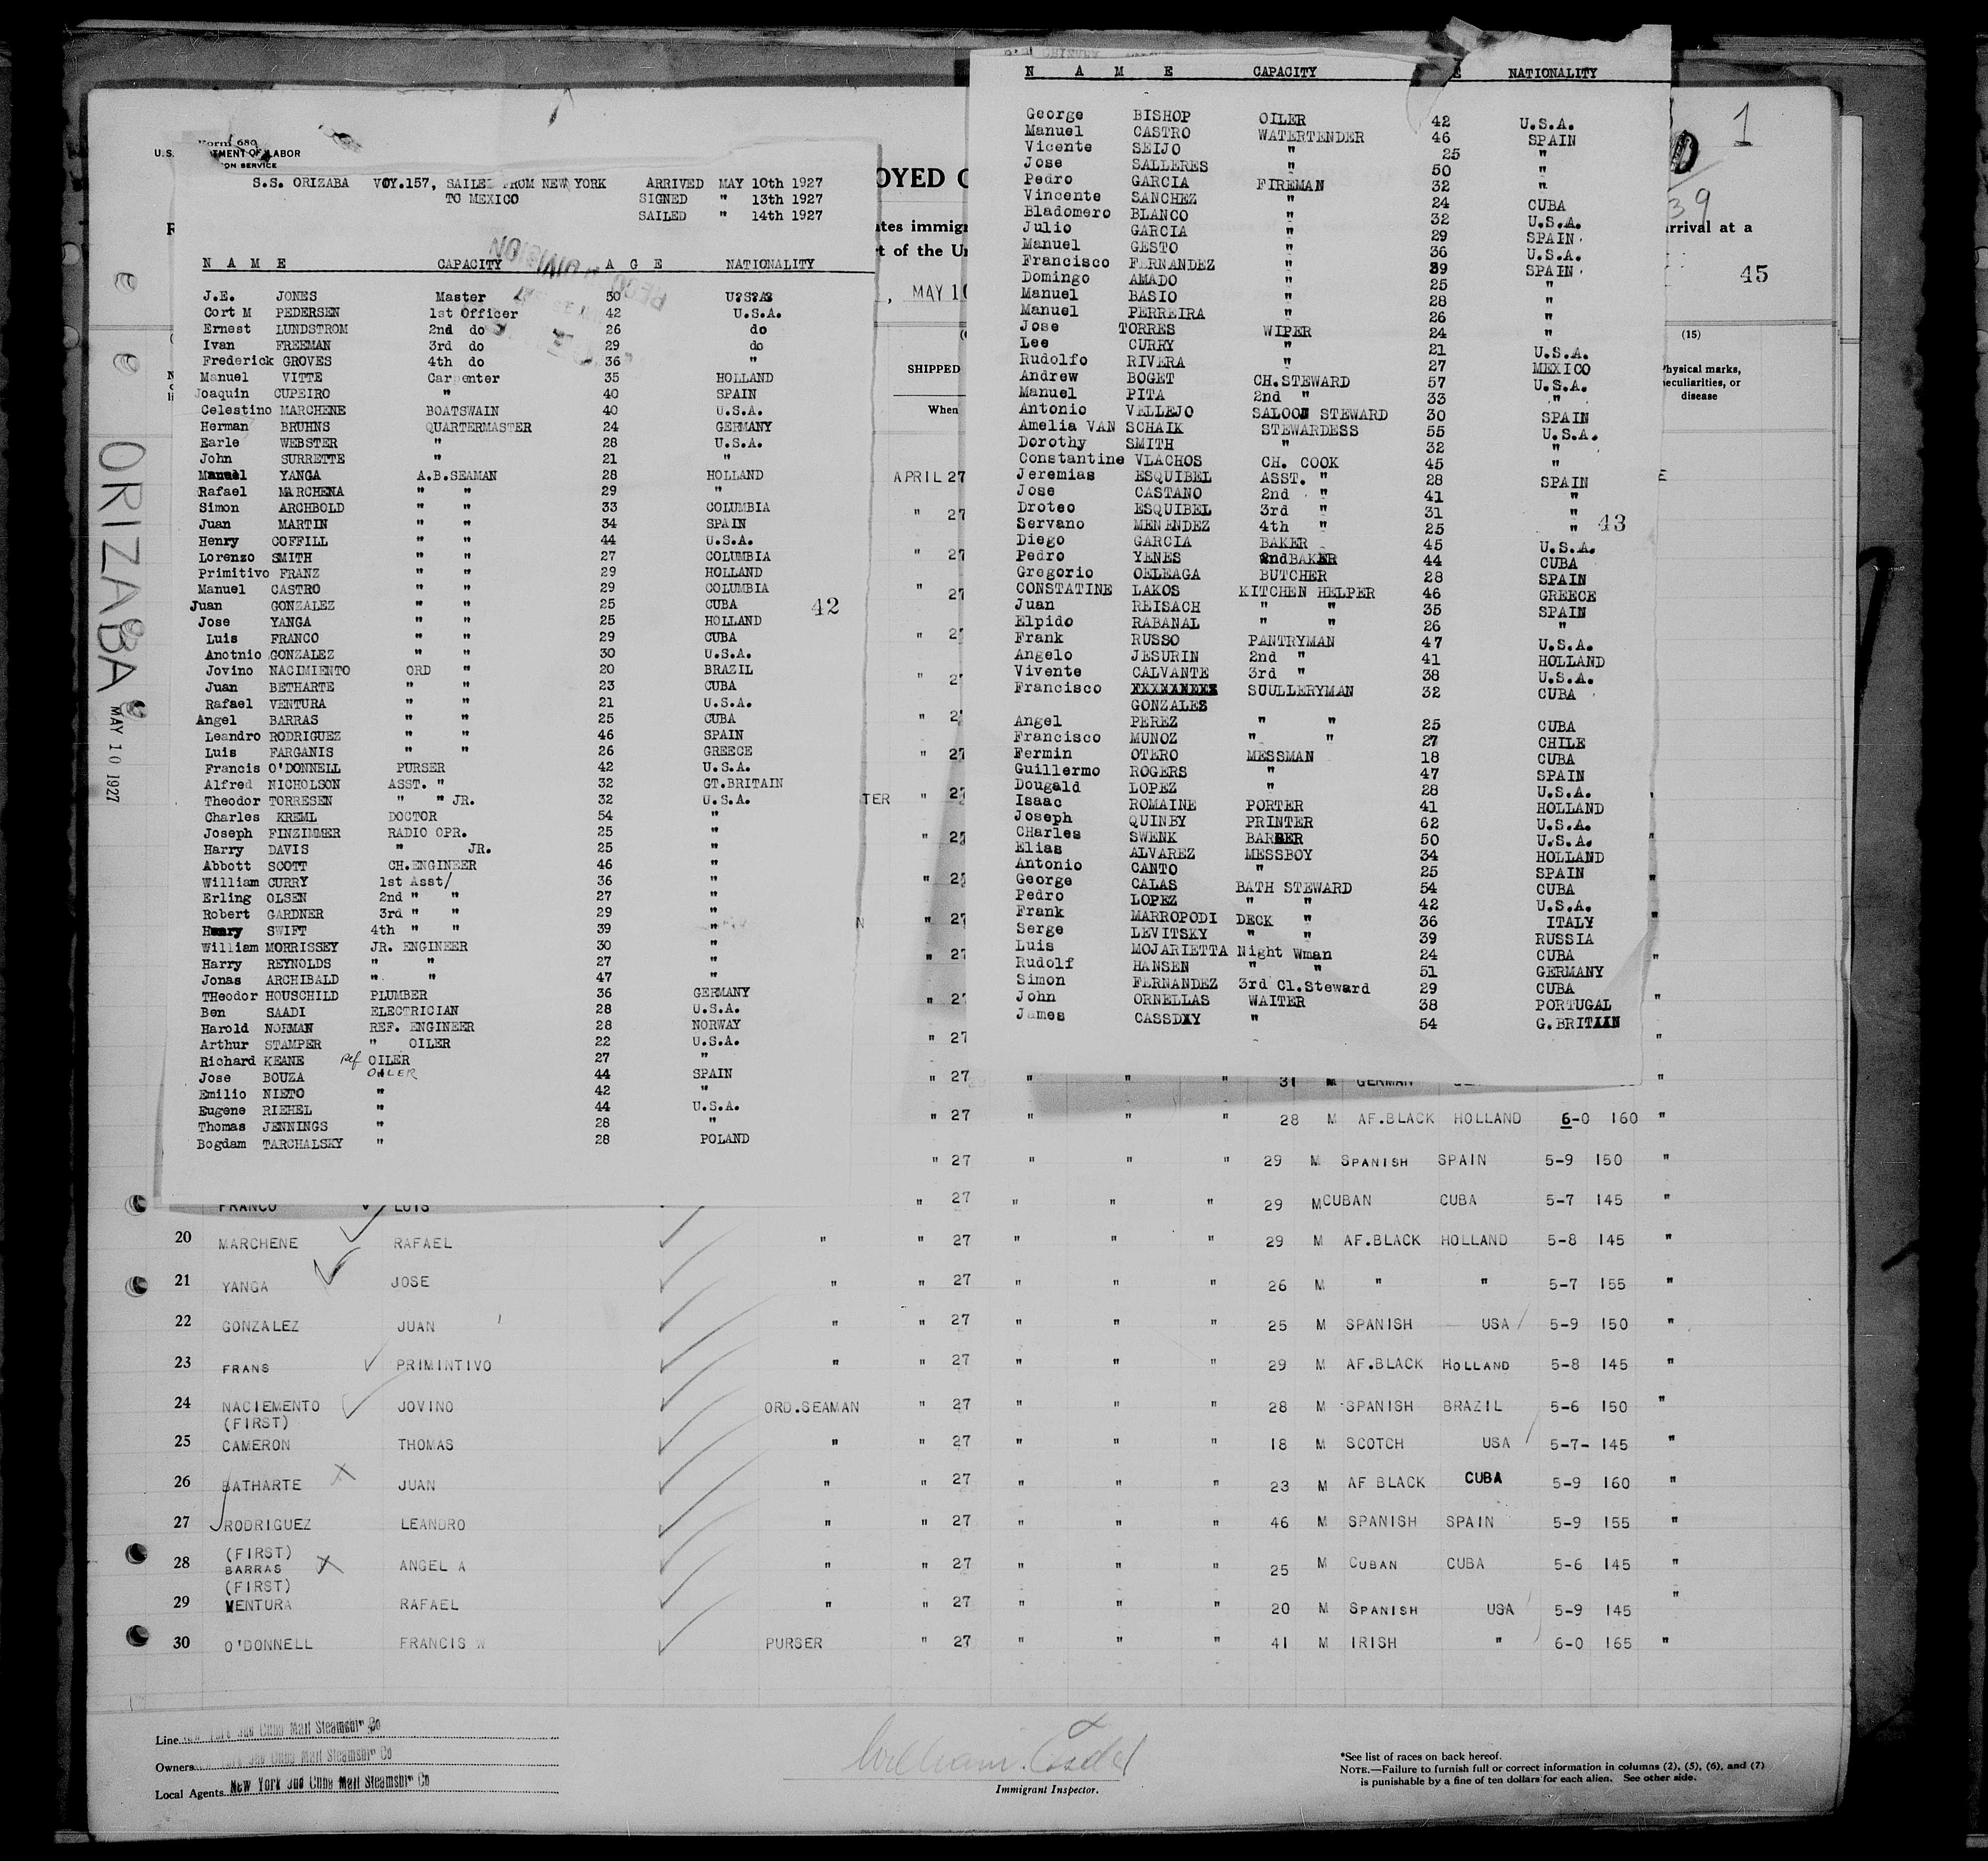 Form 680
U.S. DEPARTMENT OF LABOR
S.S. ORIZABA VOY.157, SAILED FROM NEW YORK ARRIVED MAY 10th 1927
TO MEXICO SIGNED " 13th 1927
SAILED " 14th 1927
N A M E CAPACITY A G E NATIONALITY
J.E. JONES Master 50 U?S?A?
Cort M PEDERSEN 1st Officer 42 U.S.A.
Ernest LUNDSTROM 2nd do 26 do
Ivan FREEMAN 3rd do 29 do
Frederick GROVES 4th do 36 "
Manuel VITTE Carpenter 35 HOLLAND
Joaquin CUPEIRO " 40 SPAIN
Celestino MARCHENE BOATSWAIN 40 U.S.A.
Herman BRUHNS QUARTERMASTER 24 GERMANY
Earle WEBSTER " 28 U.S.A.
John SURRETTE " 21 "
Manuel YANGA A.B.SEAMAN 28 HOLLAND
Rafael MARCHENA " " 29 "
Simon ARCHBOLD " " 33 COLUMBIA
Juan MARTIN " " 34 SPAIN
Henry COFFILL " " 44 U.S.A.
Lorenzo SMITH " " 27 COLUMBIA
Primitivo FRANZ " " 29 HOLLAND
Manuel CASTRO " " 29 COLUMBIA
Juan GONZALEZ " " 25 CUBA 42
Jose YANGA " " 25 HOLLAND
Luis FRANCO " " 29 CUBA
Anotnio GONZALEZ " " 30 U.S.A.
Jovino NACIMIENTO ORD " 20 BRAZIL
Juan BETHARTE " " 23 CUBA
Rafael VENTURA " " 21 U.S.A.
Angel BARRAS " " 25 CUBA
Leandro RODRIGUEZ " " 46 SPAIN
Luis FARGANIS " " 26 GREECE
Francis O'DONNELL PURSER 42 U.S.A.
Alfred NICHOLSON ASST. " 32 GT.BRITAIN
Theodor TORRESEN " " JR. 32 U.S.A.
Charles KREML DOCTOR 54 "
Joseph FINZIMMER RADIO OPR. 25 "
Harry DAVIS " JR. 25 "
Abbott SCOTT CH.ENGINEER 46 "
William CURRY 1st Asst/ 36 "
Erling OLSEN 2nd " " 27 "
Robert GARDNER 3rd " " 29 "
Henry SWIFT 4th " " 39 "
William MORRISSEY JR. ENGINEER 30 "
Harry REYNOLDS " " 27 "
Jonas ARCHIBALD " " 47 "
THeodor HOUSCHILD PLUMBER 36 GERMANY
Ben SAADI ELECTRICIAN 28 U.S.A.
Harold NORMAN REF. ENGINEER 28 NORWAY
Arthur STAMPER " OILER 22 U.S.A.
Richard KEANE Ref OILER 27 "
Jose BOUZA OILER 44 SPAIN
Emilio NIETO " 42 "
Eugene RIEHEL " 44 U.S.A.
Thomas JENNINGS " 28 "
Bogdam TARCHALSKY " 28 POLAND
N A M E CAPACITY E NATIONALITY
George BISHOP OILER 42 U.S.A.
Manuel CASTRO WATERTENDER 46 SPAIN
Vicente SEIJO " 25 "
Jose SALLERES " 50 "
Pedro GARCIA FIREMAN 32 "
Vincente SANCHEZ " 24 CUBA
Bladomero BLANCO " 32 U.S.A.
Julio GARCIA " 29 SPAIN
Manuel GESTO " 36 U.S.A.
Francisco FERNANDEZ " 39 SPAIN
Domingo AMADO " 25 "
Manuel BASIO " 28 "
Manuel PERREIRA " 26 "
Jose TORRES WIPER 24 "
Lee CURRY " 21 U.S.A.
Rudolfo RIVERA " 27 MEXICO
Andrew BOGET CH.STEWARD 57 U.S.A.
Manuel PITA 2nd " 33 "
Antonio VELLEJO SALOON STEWARD 30 SPAIN
Amelia VAN SCHAIK STEWARDESS 55 U.S.A.
Dorothy SMITH " 32 "
Constantine VLACHOS CH. COOK 45 "
Jeremias ESQUIBEL ASST. " 28 SPAIN
Jose CASTANO 2nd " 41 "
Droteo ESQUIBEL 3rd " 31 "
Servano MENENDEZ 4th " 25 " 43
Diego GARCIA BAKER 45 U.S.A.
Pedro YENES 2ndBAKER 44 CUBA
Gregorio OELEAGA BUTCHER 28 SPAIN
CONSTATINE LAKOS KITCHEN HELPER 46 GREECE
Juan REISACH " " 35 SPAIN
Elpido RABANAL " " 26 "
Frank RUSSO PANTRYMAN 47 U.S.A.
Angelo JESURIN 2nd " 41 HOLLAND
Vivente CALVANTE 3rd " 38 U.S.A.
Francisco SUULLERYMAN 32 CUBA
GONZALES
Angel PEREZ " " 25 CUBA
Francisco MUNOZ " " 27 CHILE
Fermin OTERO MESSMAN 18 CUBA
Guillermo ROGERS " 47 SPAIN
Dougald LOPEZ " 28 U.S.A.
Isaac ROMAINE PORTER 41 HOLLAND
Joseph QUINBY PRINTER 62 U.S.A.
CHarles SWENK BARBER 50 U.S.A.
Elias ALVAREZ MESSBOY 34 HOLLAND
Antonio CANTO " 25 SPAIN
George CALAS BATH STEWARD 54 CUBA
Pedro LOPEZ " " 42 U.S.A.
Frank MARROPODI DECK " 36 ITALY
Serge LEVITSKY " " 39 RUSSIA
Luis MOJARIETTA Night Wman 24 CUBA
Rudolf HANSEN " " 51 GERMANY
Simon FERNANDEZ 3rd Cl.Steward 29 CUBA
John ORNELLAS WAITER 38 PORTUGAL
James CASSDXY " 54 G.BRITAIN
1
39
45
arrival at a
MAY 10
(15)
SHIPPED
When
Physical marks,
peculiarities, or
disease
APRIL 27
ORIZABA MAY 10 1927
31 M GERMAN
" 27 " " " 28 M AF.BLACK HOLLAND 6-0 160 "
" 27 " " " 29 M SPANISH SPAIN 5-9 150 "
FRANCO LUIS " 27 " " " 29 M CUBAN CUBA 5-7 145 "
20 MARCHENE RAFAEL " " 27 " " " 29 M AF.BLACK HOLLAND 5-8 145 "
21 YANGA JOSE " " 27 " " " 26 M " " 5-7 155 "
22 GONZALEZ JUAN " " 27 " " " 25 M SPANISH USA 5-9 150 "
23 FRANS PRIMINTIVO " " 27 " " " 29 M AF.BLACK HOLLAND 5-8 145 "
24 NACIEMENTO JOVINO ORD.SEAMAN " 27 " " " 28 M SPANISH BRAZIL 5-6 150 "
(FIRST)
25 CAMERON THOMAS " " 27 " " " 18 M SCOTCH USA 5-7- 145 "
26 BATHARTE JUAN " " 27 " " " 23 M AF BLACK CUBA 5-9 160 "
27 RODRIGUEZ LEANDRO " " 27 " " " 46 M SPANISH SPAIN 5-9 155 "
(FIRST)
28 BARRAS ANGEL A " " 27 " " " 25 M CUBAN CUBA 5-6 145 "
(FIRST)
29 VENTURA RAFAEL " " 27 " " " 20 M SPANISH USA 5-9 145 "
30 O'DONNELL FRANCIS W PURSER " 27 " " " 41 M IRISH " 6-0 165 "
Line New York and Cuba Mail Steamship Co
Owners New York and Cuba Mail Steamship Co
Local Agents New York and Cuba Mail Steamship Co
Immigrant Inspector.
*See list of races on back hereof.
NOTE.—Failure to furnish full or correct information in columns (2), (5), (6), and (7)
is punishable by a fine of ten dollars for each alien. See other side.